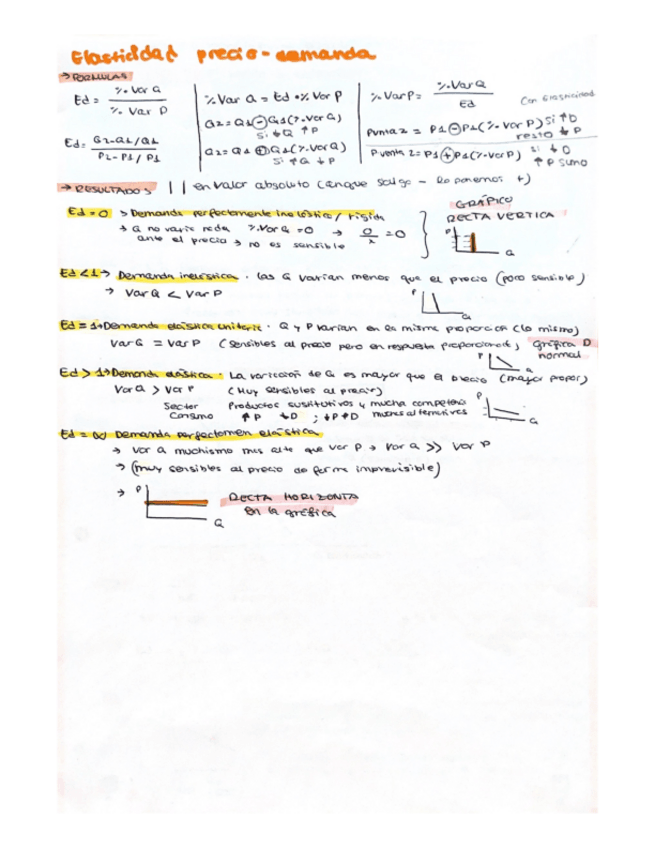 Elasticidad precio-demanda
→ FORMULAS
Ed = % Var Q / % Var P
% Var Q = Ed · % Var P
% Var P = % Var Q / Ed
Ed = Q2-Q1/Q1 / P2-P1/P1
Q2 = Q1 ⊖ Q1 (% Var Q)
si ↓Q ↑P
Q2 = Q1 ⊕ Q1 (% Var Q)
si ↑Q ↓P
Con Elasticidad
Punta 2 = P1 ⊖ P1 (% Var P) si ↑D
resto ↓P
Punta 2 = P1 ⊕ P1 (% Var P) si ↓D
↑P sumo
→ RESULTADOS | | en valor absoluto (anque salga - lo ponemos +)
Ed = 0 → Demanda perfectamente inelástica / rígida
→ Q no varia nada % Var Q = 0 → 0/x = 0
ante el precio → no es sensible
GRÁFICO
RECTA VERTICA
P
Q
Ed < 1 → Demanda inelástica · Las Q varian menos que el precio (poco sensible)
→ Var Q < Var P
P
Q
Ed = 1 → Demanda elástica unitaria · Q y P varian en la misma proporcion (lo mismo)
Var Q = Var P (sensibles al precio pero en respuesta proporcionada) gráfica D
normal
P
Q
Ed > 1 → Demanda elástica · La variacion de Q es mayor que el precio (mayor propor)
Var Q > Var P (Muy sensibles al precio)
Sector Productos sustitutivos y mucha competencia
Consmo ↑P ↓D ; ↓P ↑D muchas alternativas
P
Q
Ed = ∞ Demanda perfectamen elástica
→ Var Q muchismo mas alta que Var P → Var Q >> Var P
→ (muy sensibles al precio de forma imprevisible)
→ P
Q
RECTA HORIZONTA
en la gráfica